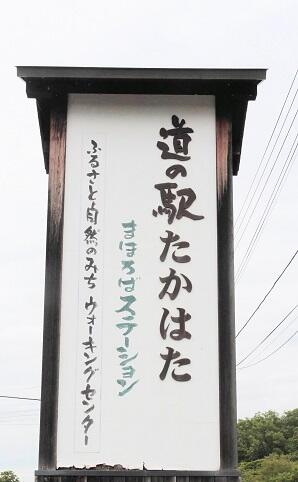 道の駅たかはた
まほろばステーション
ふるさと自然のみち ウォーキングセンター